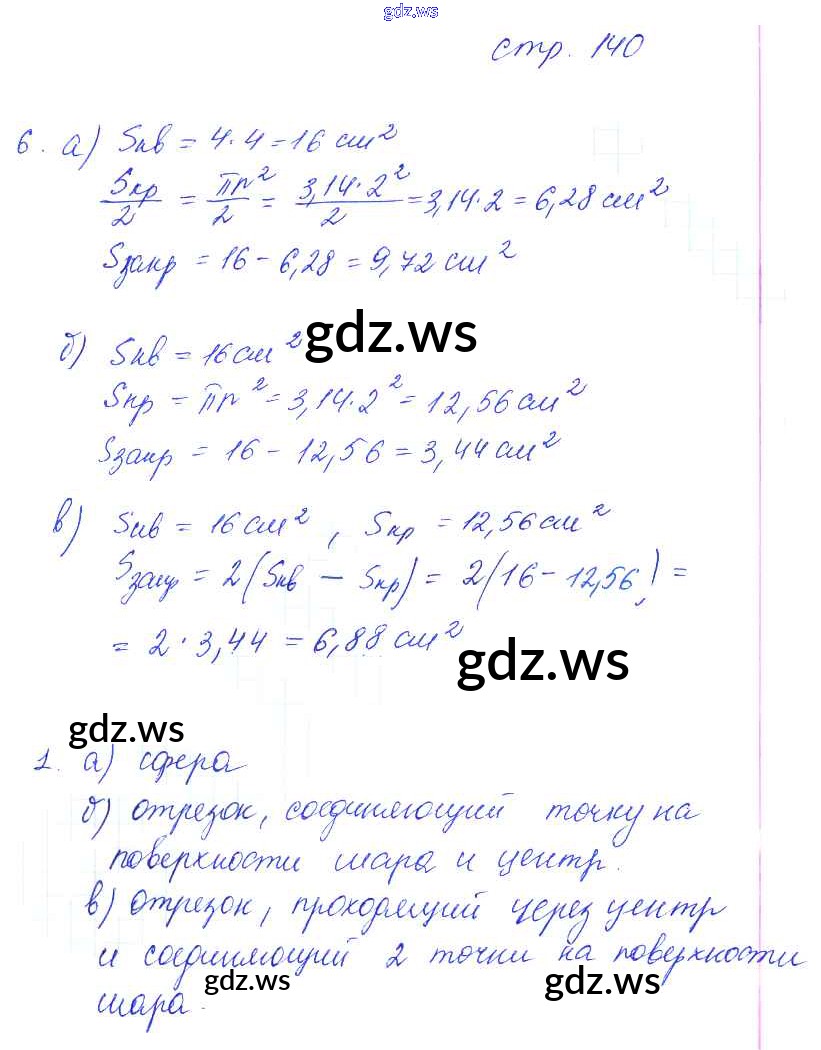 gdz.ws
стр. 140
6. а) Sкв = 4·4 = 16 см²
Sкр/2 = πr²/2 = 3,14·2²/2 = 3,14·2 = 6,28 см²
Sзакр = 16 - 6,28 = 9,72 см²
б) Sкв = 16 см²
gdz.ws
Sкр = πr² = 3,14·2² = 12,56 см²
Sзакр = 16 - 12,56 = 3,44 см²
в) Sкв = 16 см², Sкр = 12,56 см²
Sзакр = 2(Sкв - Sкр) = 2(16 - 12,56) =
= 2·3,44 = 6,88 см²
gdz.ws
gdz.ws
1. а) сфера
б) отрезок, соединяющий точку на
поверхности шара и центр.
в) отрезок, проходящий через центр
и соединяющий 2 точки на поверхности
шара.
gdz.ws
gdz.ws